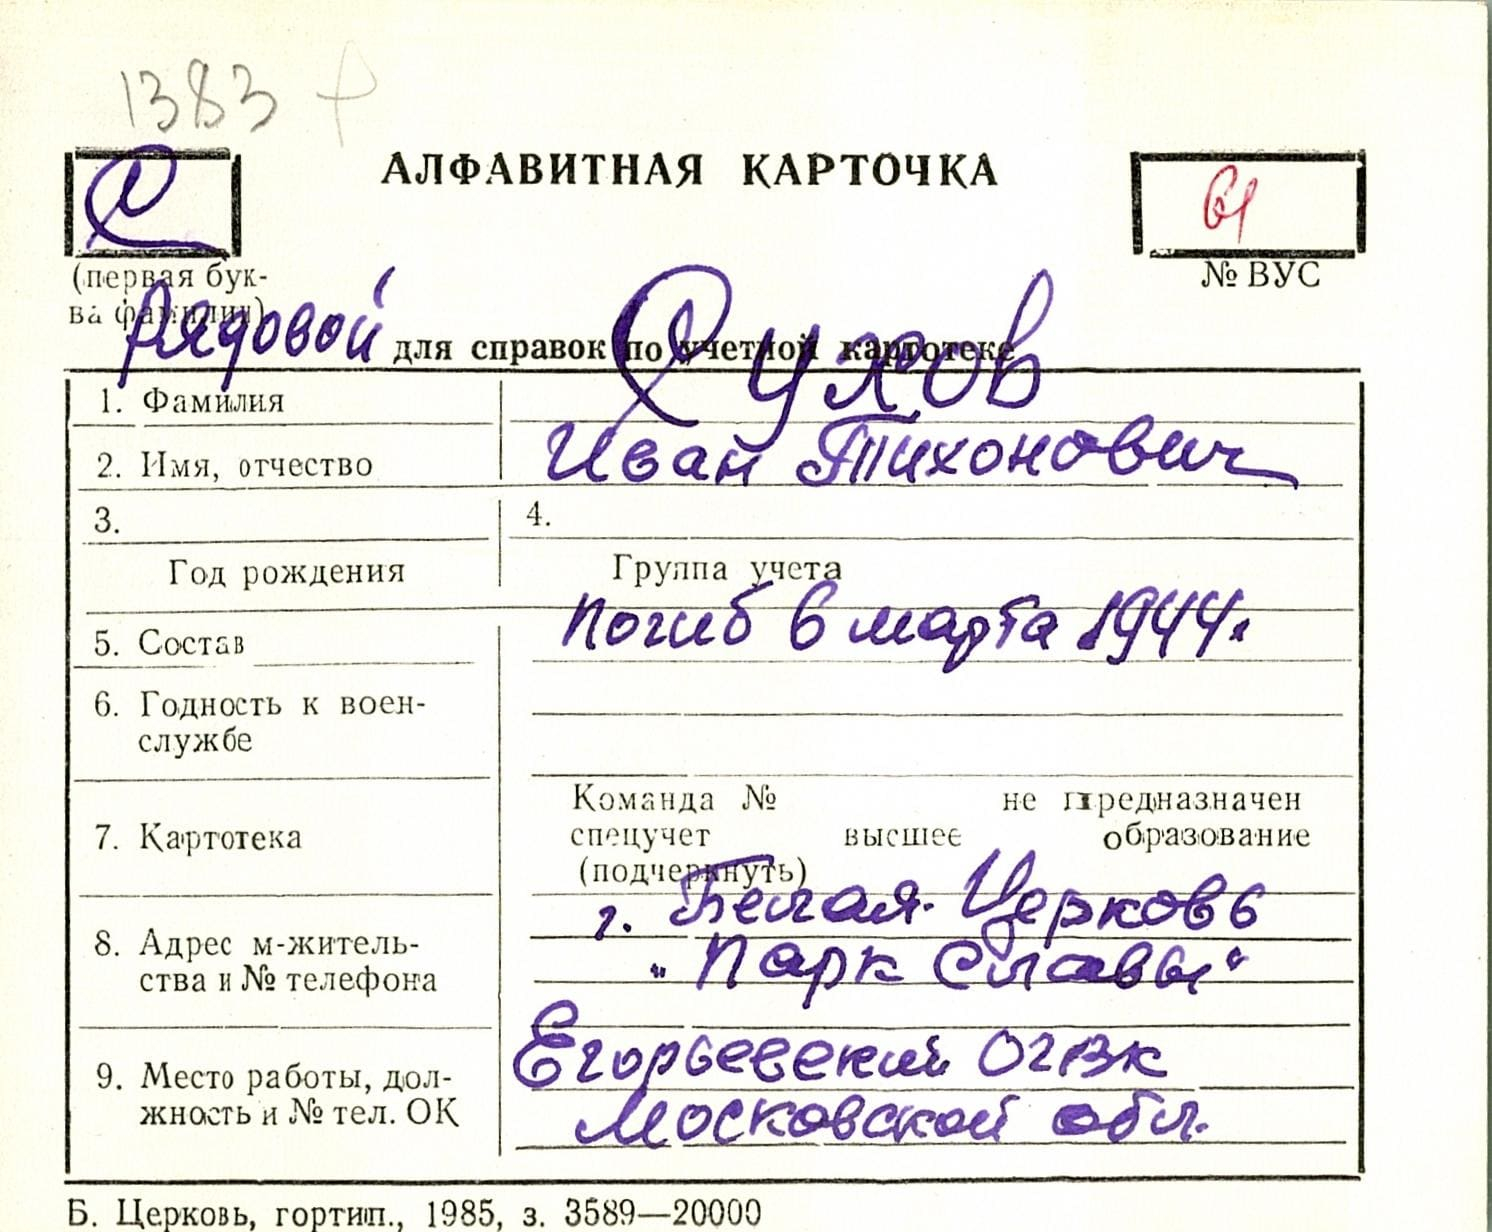 1383
С
АЛФАВИТНАЯ КАРТОЧКА
61
(первая бук-
ва фамилии)
№ ВУС
Рядовой
для справок по учетной картотеке
1. Фамилия Сухов
2. Имя, отчество Иван Тихонович
3. 4.
Год рождения Группа учета
5. Состав Погиб 6 марта 1944г.
6. Годность к воен-
службе
Команда № не предназначен
7. Картотека спецучет высшее образование
(подчеркнуть)
г. Белая Церковь
8. Адрес м-житель- „Парк Славы“
ства и № телефона
Егорьевский ОГВК
9. Место работы, дол-
жность и № тел. ОК Московской обл.
Б. Церковь, гортип., 1985, з. 3589—20000